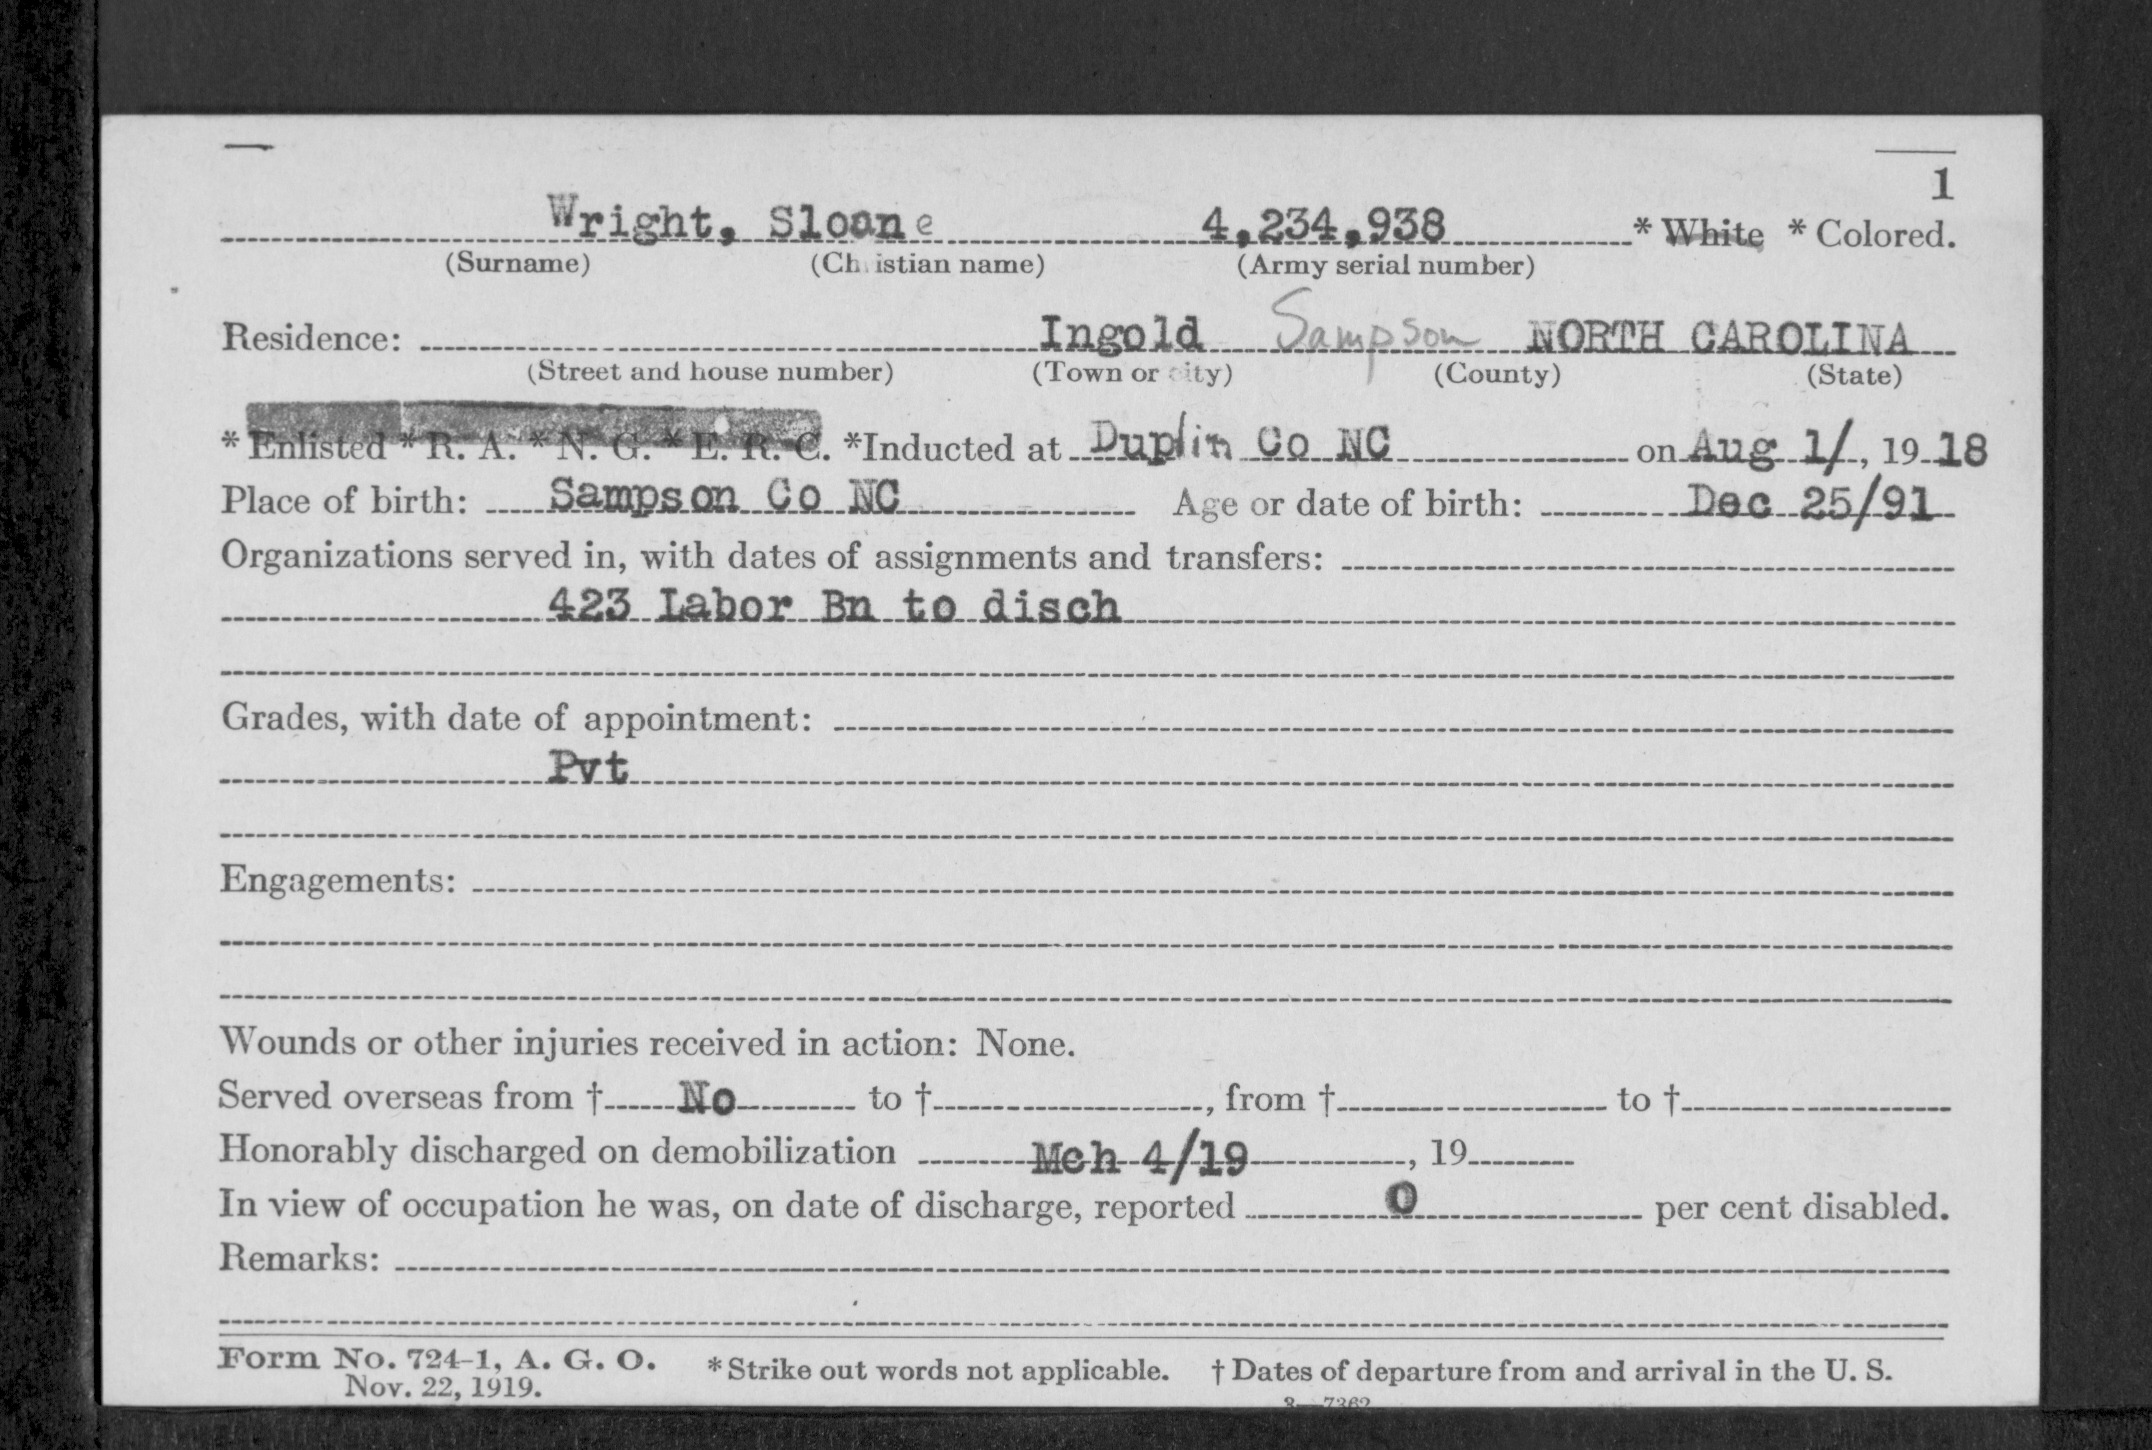 1
Wright, Sloane 4,234,938 * White * Colored.
(Surname) (Christian name) (Army serial number)
Residence: Ingold Sampson NORTH CAROLINA
(Street and house number) (Town or city) (County) (State)
* Enlisted * R. A. * N. G. * E. R. C. *Inducted at Duplin Co NC on Aug 1/, 1918
Place of birth: Sampson Co NC Age or date of birth: Dec 25/91
Organizations served in, with dates of assignments and transfers:
423 Labor Bn to disch
Grades, with date of appointment:
Pvt
Engagements:
Wounds or other injuries received in action: None.
Served overseas from † No to †, from † to †
Honorably discharged on demobilization Mch 4/19, 19
In view of occupation he was, on date of discharge, reported 0 per cent disabled.
Remarks:
Form No. 724-1, A. G. O. * Strike out words not applicable. † Dates of departure from and arrival in the U. S.
Nov. 22, 1919.
3—7362